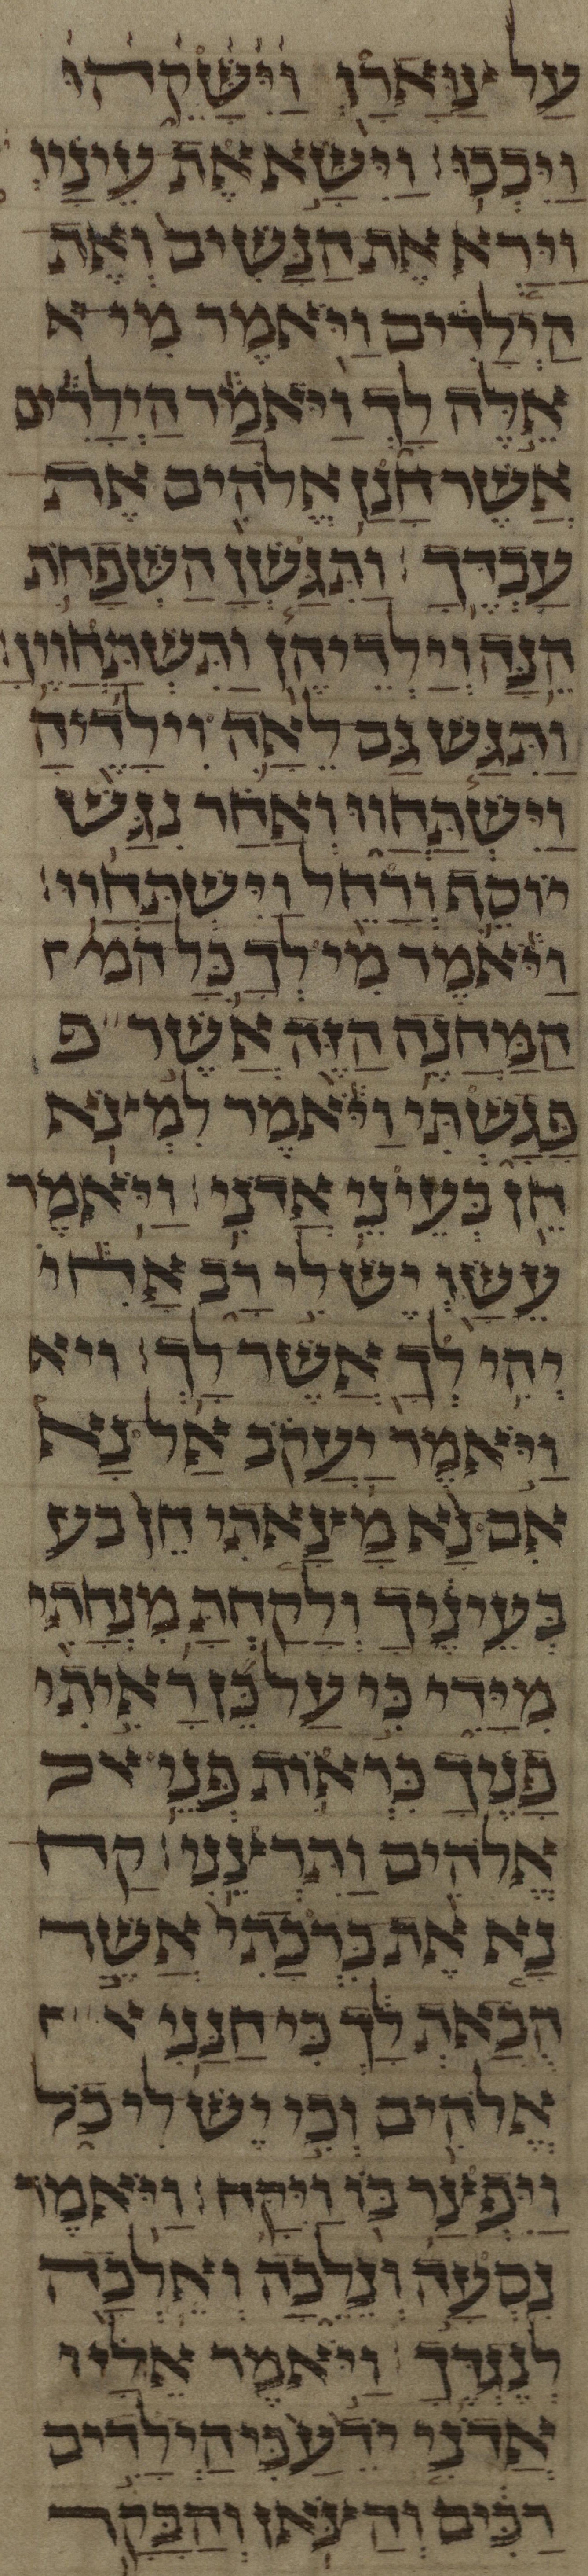 עַל צַוָּארָו וַיִּשָּׁקֵהוּ
וַיִּבְכּוּ׃ וַיִּשָּׂא אֶת עֵינָיו
וַיַּרְא אֶת הַנָּשִׁים וְאֶת
הַיְלָדִים וַיֹּאמֶר מִי א
אֵלֶּה לָּךְ וַיֹּאמַר הַיְלָדִים
אֲשֶׁר חָנַן אֱלֹהִים אֶת
עַבְדֶּךָ׃ וַתִּגַּשְׁןָ הַשְּׁפָחֹת
הֵנָּה וְיַלְדֵיהֶן וַתִּשְׁתַּחֲוֶיןָ׃
וַתִּגַּשׁ גַּם לֵאָה וִילָדֶיהָ
וַיִּשְׁתַּחֲווּ וְאַחַר נִגַּשׁ
יוֹסֵף וְרָחֵל וַיִּשְׁתַּחֲווּ׃
וַיֹּאמֶר מִי לְךָ כָּל המ
הַמַּחֲנֶה הַזֶּה אֲשֶׁר פ
פָּגָשְׁתִּי וַיֹּאמֶר לִמְצֹא
חֵן בְּעֵינֵי אֲדֹנִי׃ וַיֹּאמֶר
עֵשָׂו יֶשׁ לִי רָב אָחִי
יְהִי לְךָ אֲשֶׁר לָךְ׃ ויא
וַיֹּאמֶר יַעֲקֹב אַל נָא
אִם נָא מָצָאתִי חֵן בע
בְּעֵינֶיךָ וְלָקַחְתָּ מִנְחָתִי
מִיָּדִי כִּי עַל כֵּן רָאִיתִי
פָנֶיךָ כִּרְאוֹת פְּנֵי אל
אֱלֹהִים וַתִּרְצֵנִי׃ קַח
נָא אֶת בִּרְכָתִי אֲשֶׁר
הֻבָאת לָךְ כִּי חַנַּנִי א
אֱלֹהִים וְכִי יֶשׁ לִי כֹל
וַיִּפְצַר בּוֹ וַיִּקָּח׃ וַיֹּאמֶר
נִסְעָה וְנֵלֵכָה וְאֵלְכָה
לְנֶגְדֶּךָ׃ וַיֹּאמֶר אֵלָיו
אֲדֹנִי יֹדֵעַ כִּי הַיְלָדִים
רַכִּים וְהַצֹּאן וְהַבָּקָר